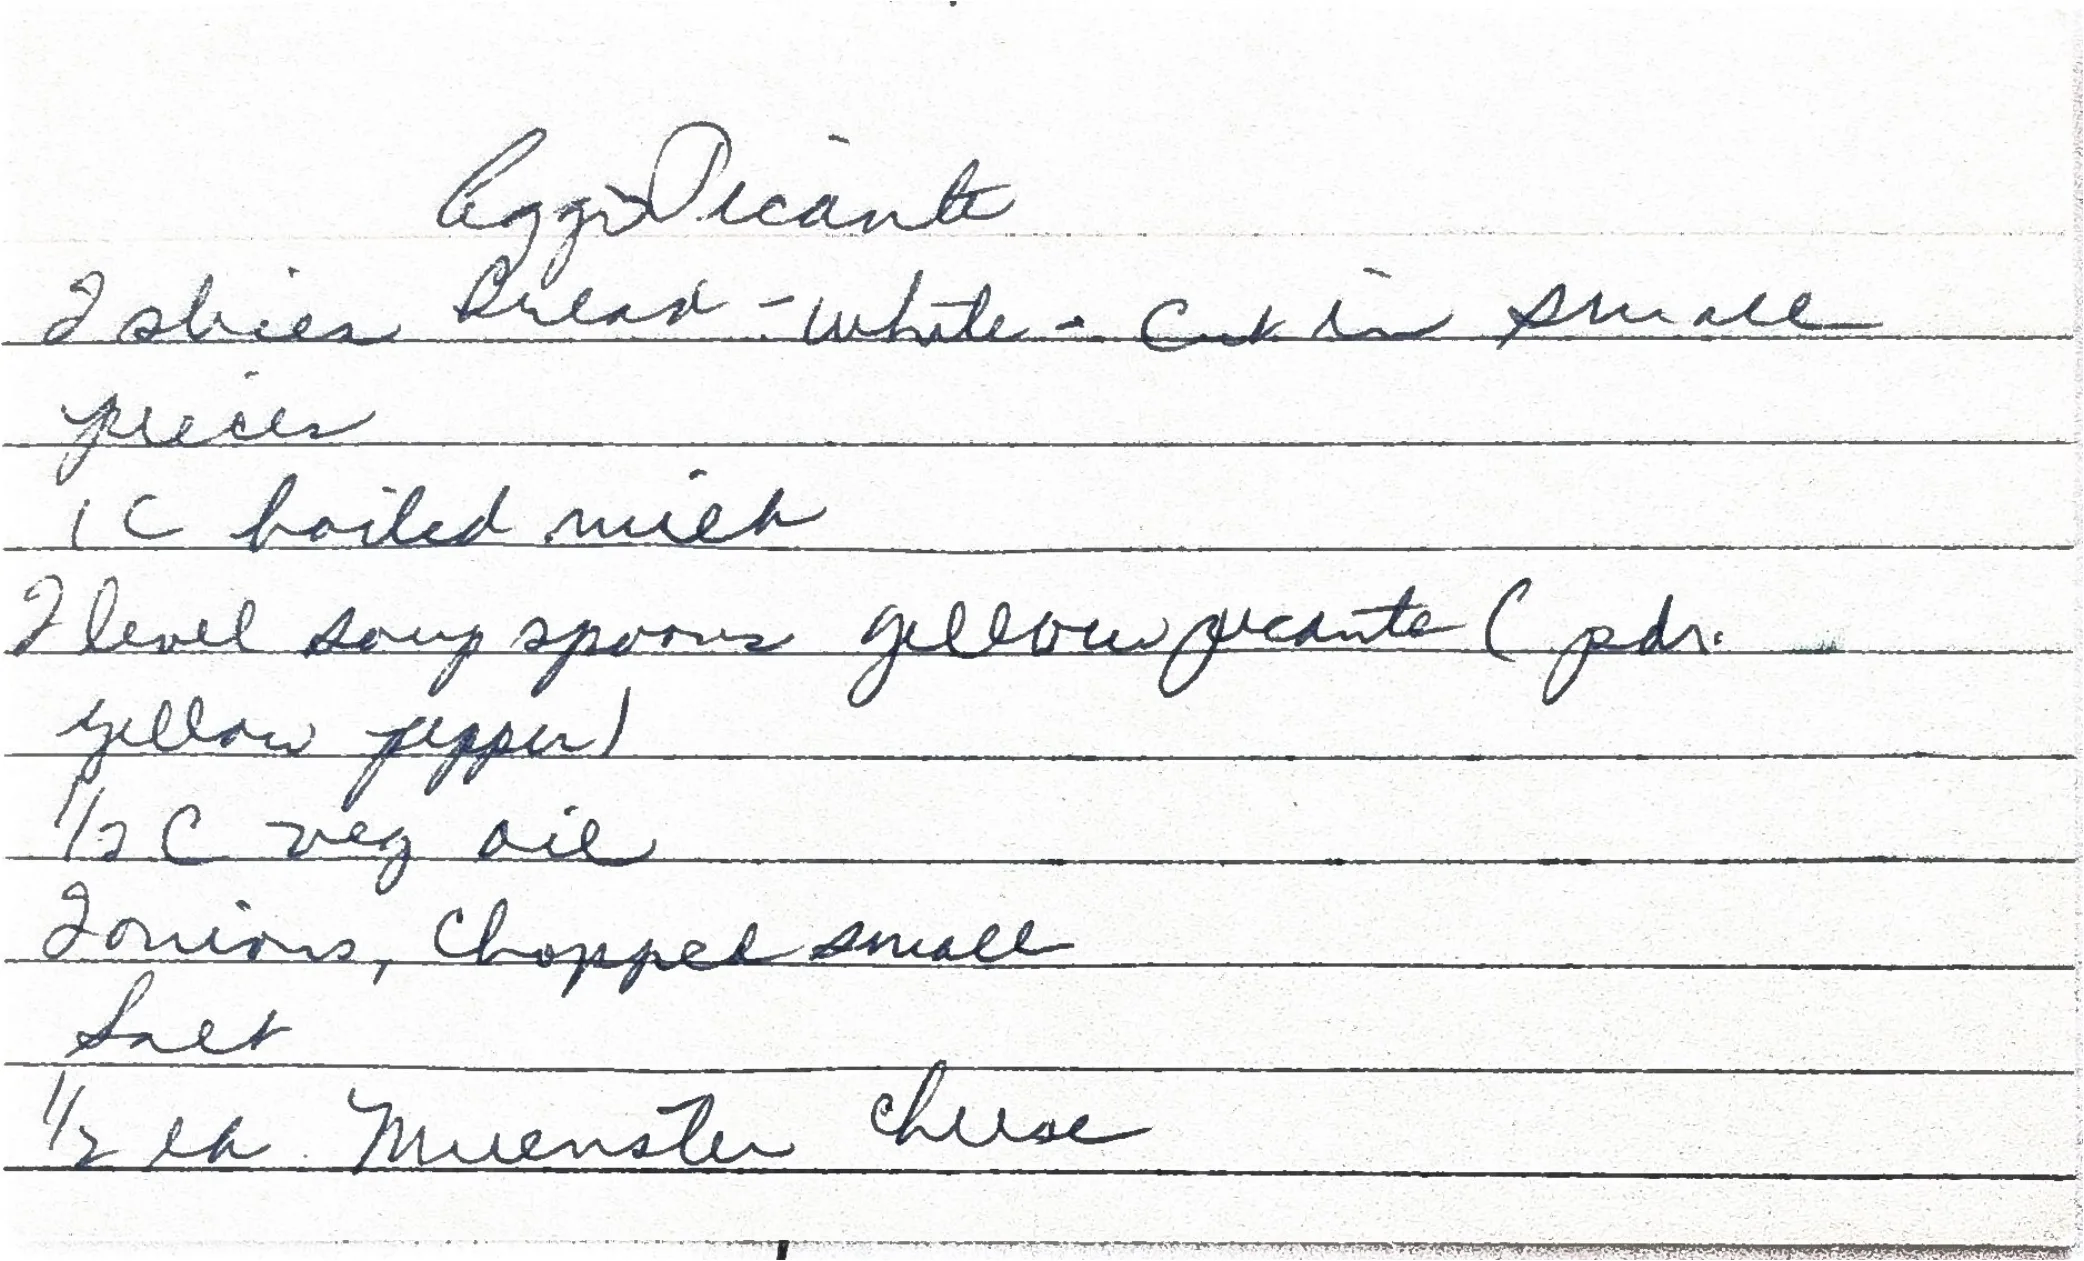 Eggs Picante
2 slices Bread - white - cut in small
pieces
1 C boiled milk
2 level soup spoons yellow picante (pdr.
yellow pepper)
1/2 C veg oil
2 onions, chopped small
Salt
1/2 Muenster cheese